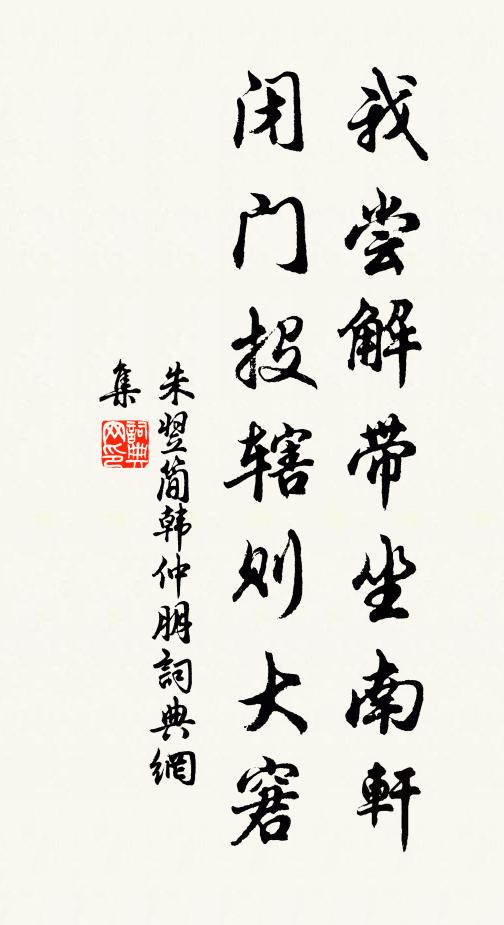 我尝解带坐南軒
闭门投辖则大窘
朱翌简韩仲朋詞典網
集
詞典网印